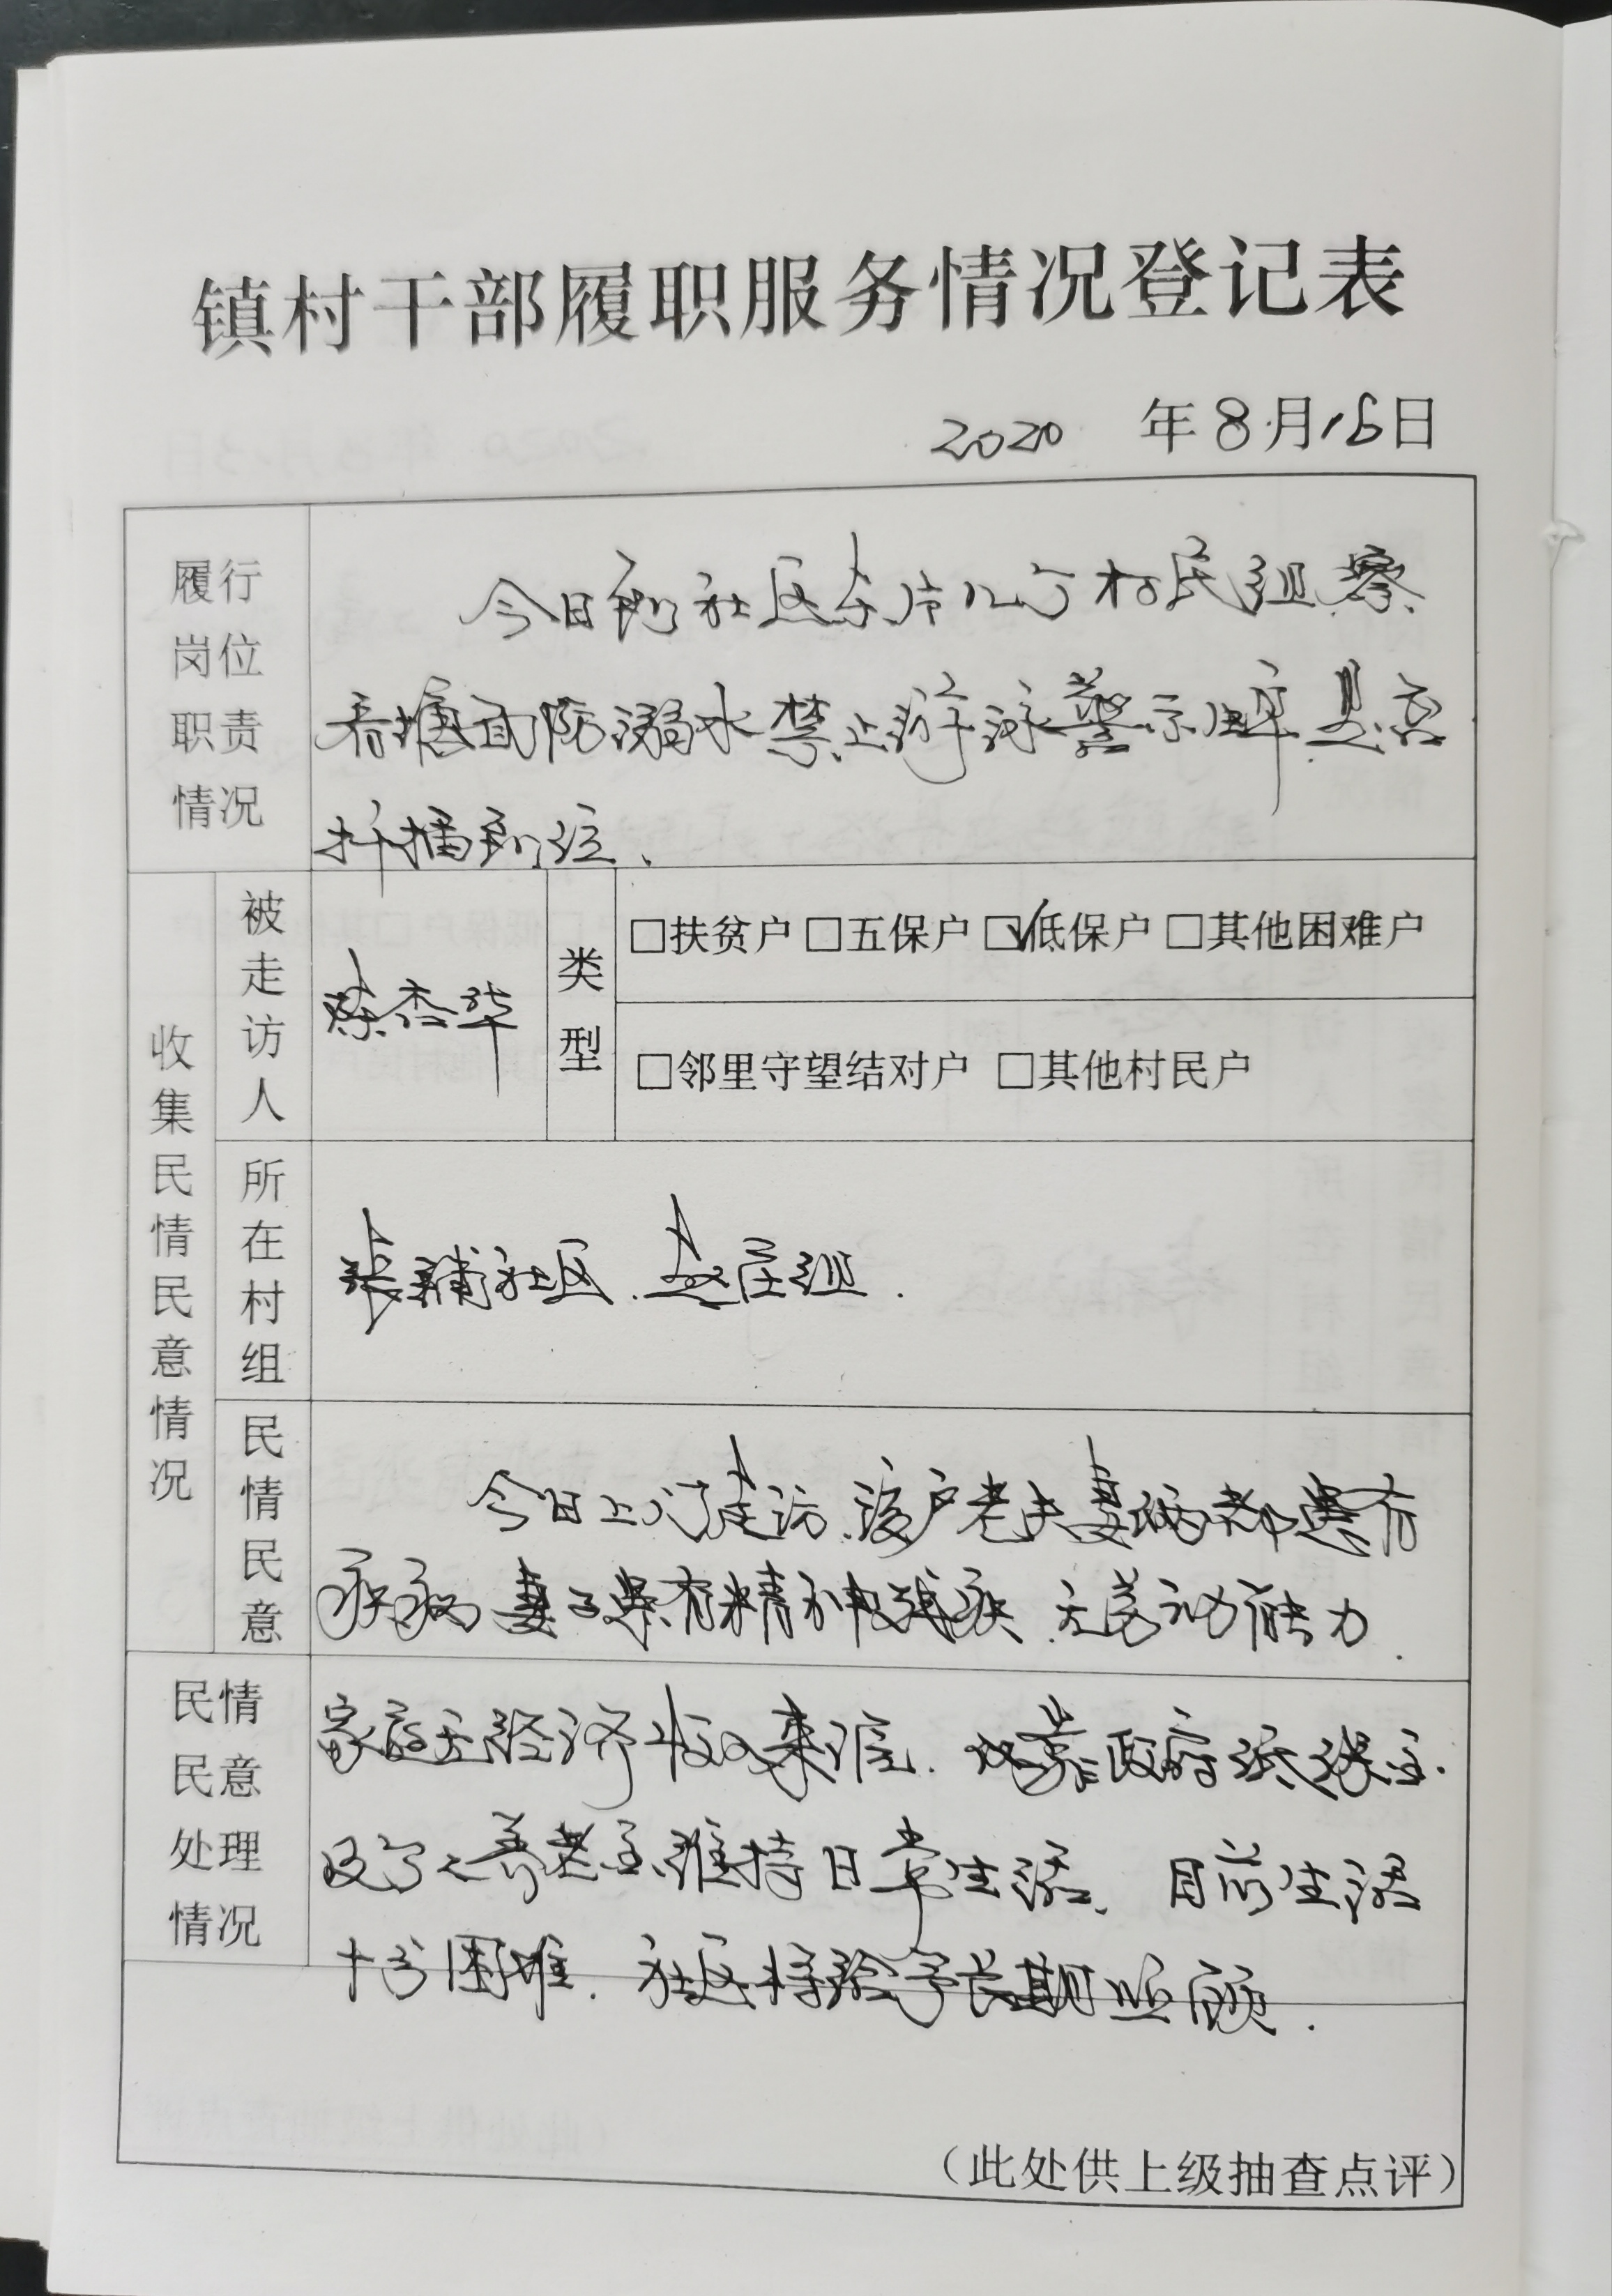 镇村干部履职服务情况登记表
2020 年 8 月 16 日
履行岗位职责情况
今日到社区东片几个村民组，察
看塘面防溺水禁止游泳警示牌是否
扦插到位、
收集民情民意情况
被走访人
陈杏华
类型
□扶贫户 □五保户 ☑低保户 □其他困难户
□邻里守望结对户 □其他村民户
所在村组
张铺社区、赵庄组.
民情民意
今日上门走访、该户老夫妻俩都患有
疾病 妻子患有精神残疾、无劳动能力.
民情民意处理情况
家庭无经济收入来源、仅靠政府低保金.
及个人养老金维持日常生活、目前生活
十分困难. 社区将给予长期照顾.
（此处供上级抽查点评）